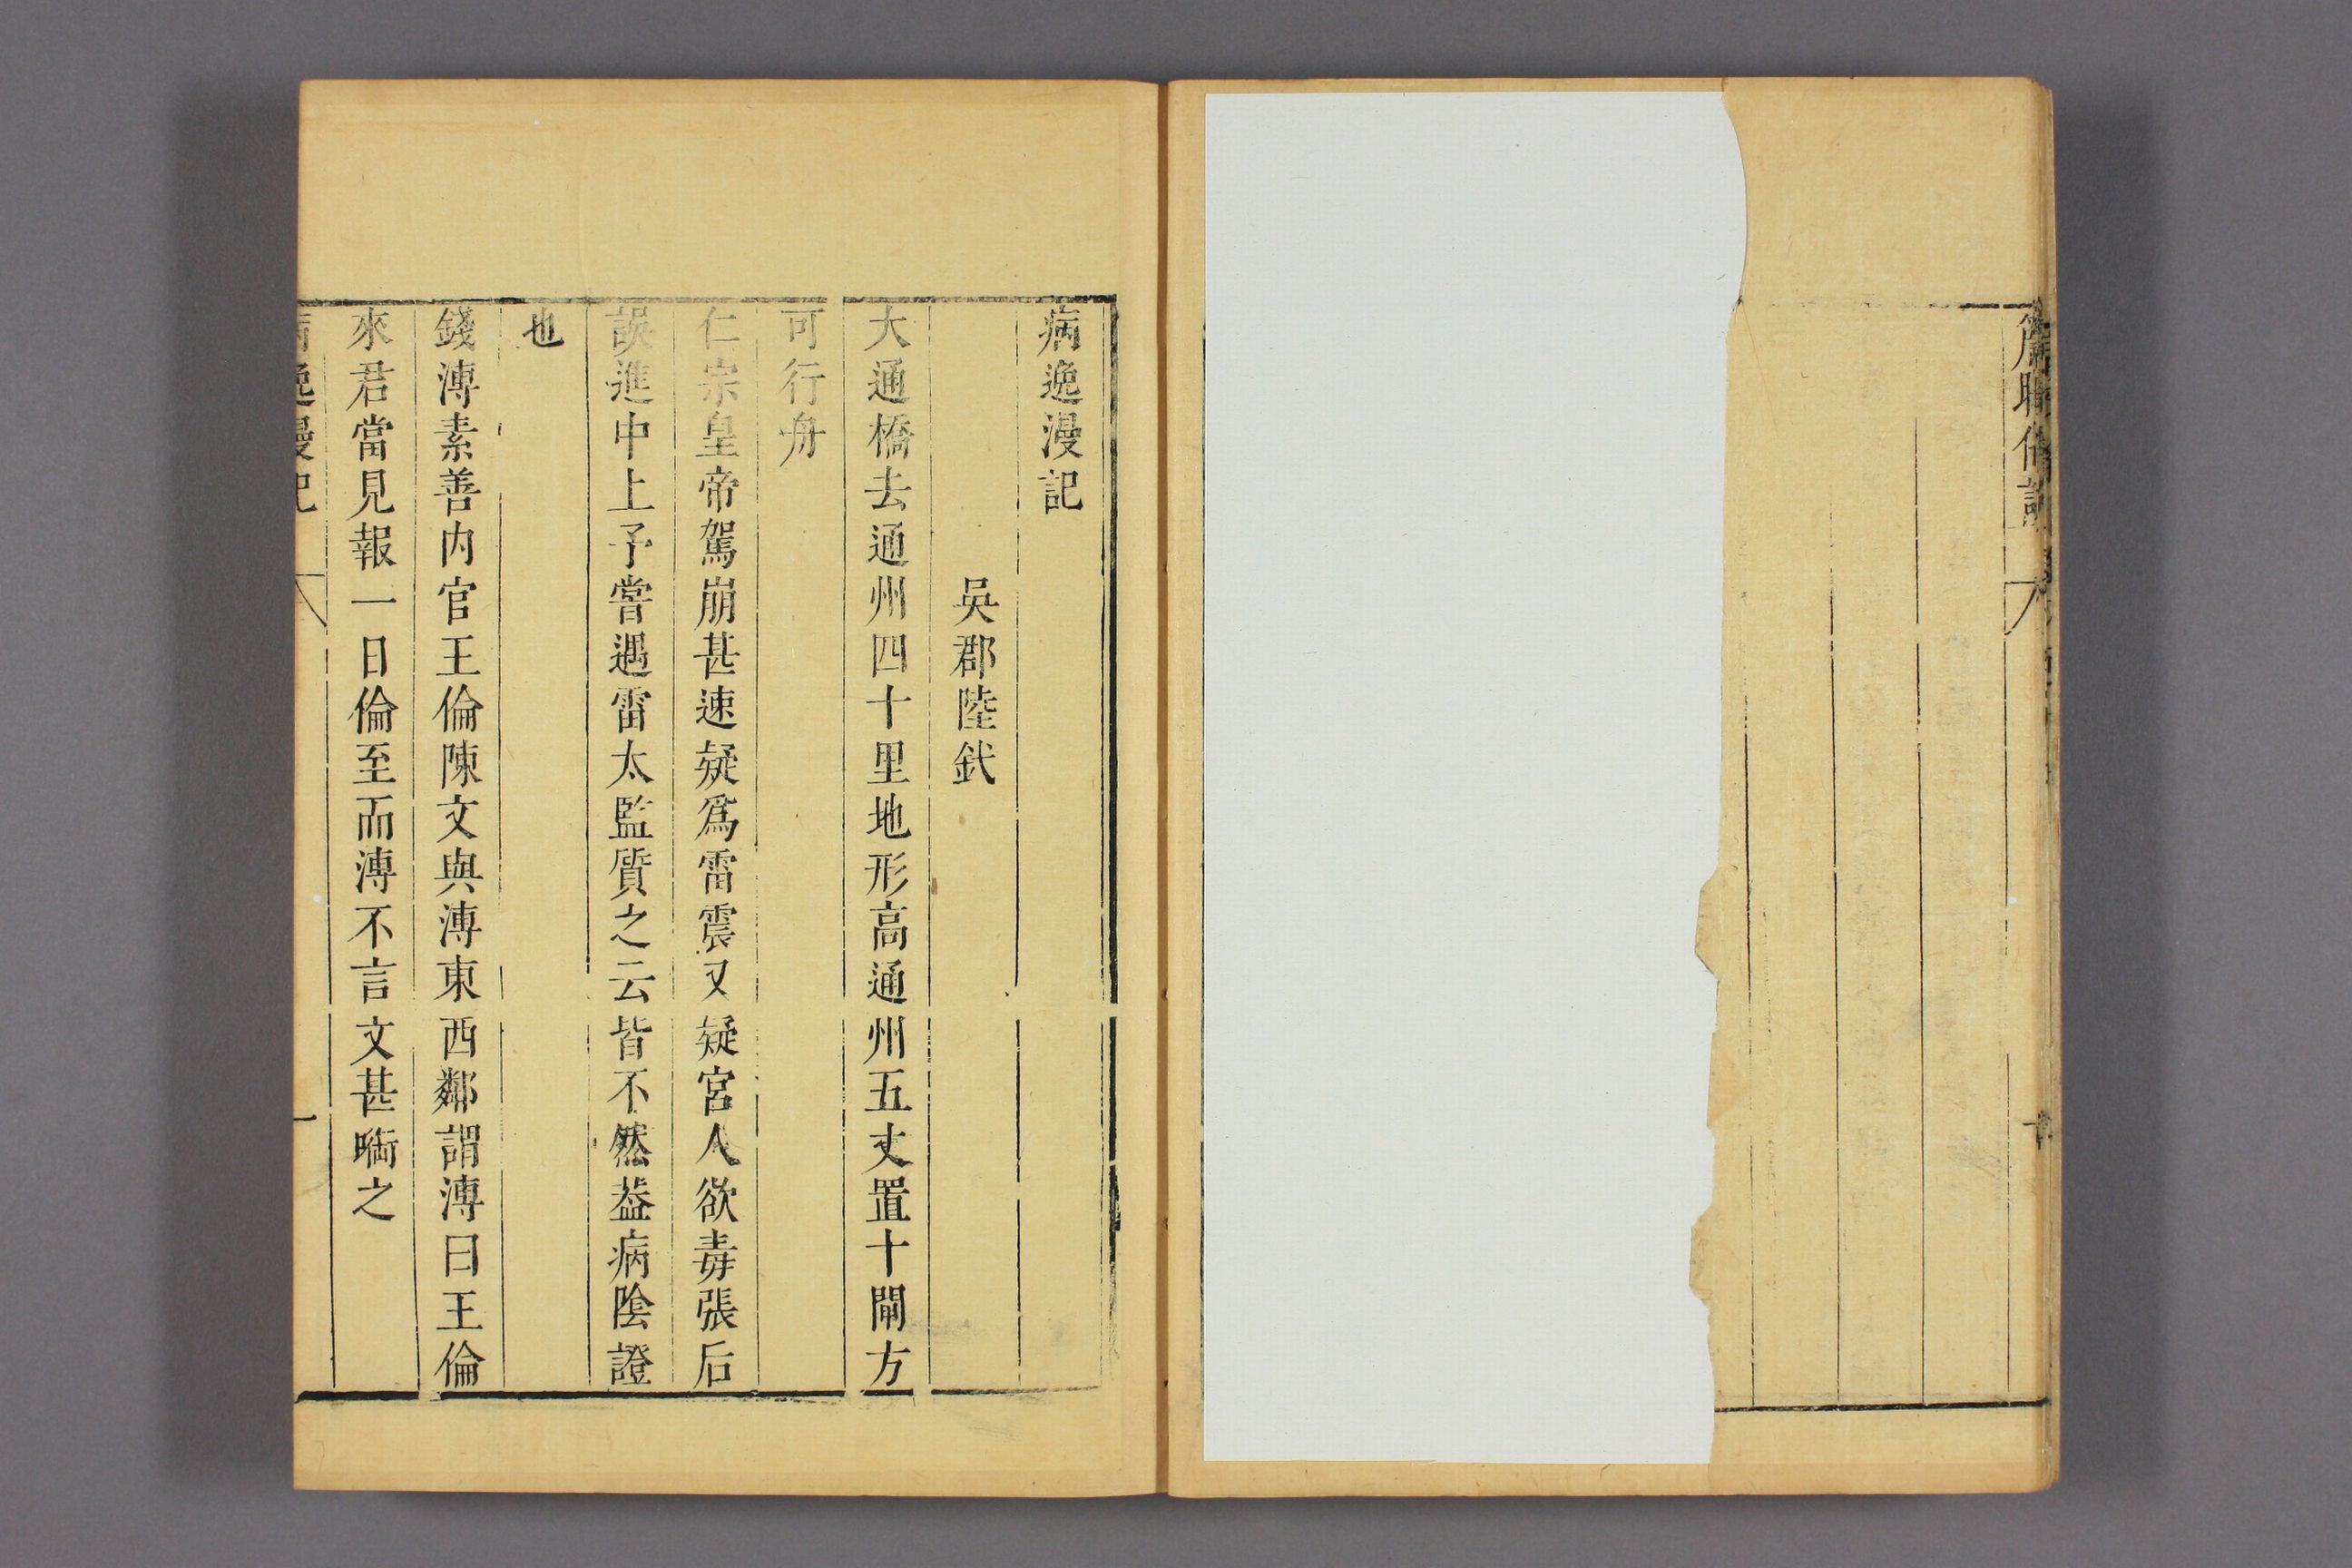 病逸漫記
吳郡陸釴
大通橋去通州四十里地形高通州五丈置十閘方
可行舟
仁宗皇帝駕崩甚速疑爲雷震又疑宮人欲毒張后
誤進中上予嘗遇雷太監質之云皆不然葢病陰證
也
錢溥素善内官王倫陳文與溥東西鄰謂溥曰王倫
來君當見報一日倫至而溥不言文甚㗖之
病逸漫記 一